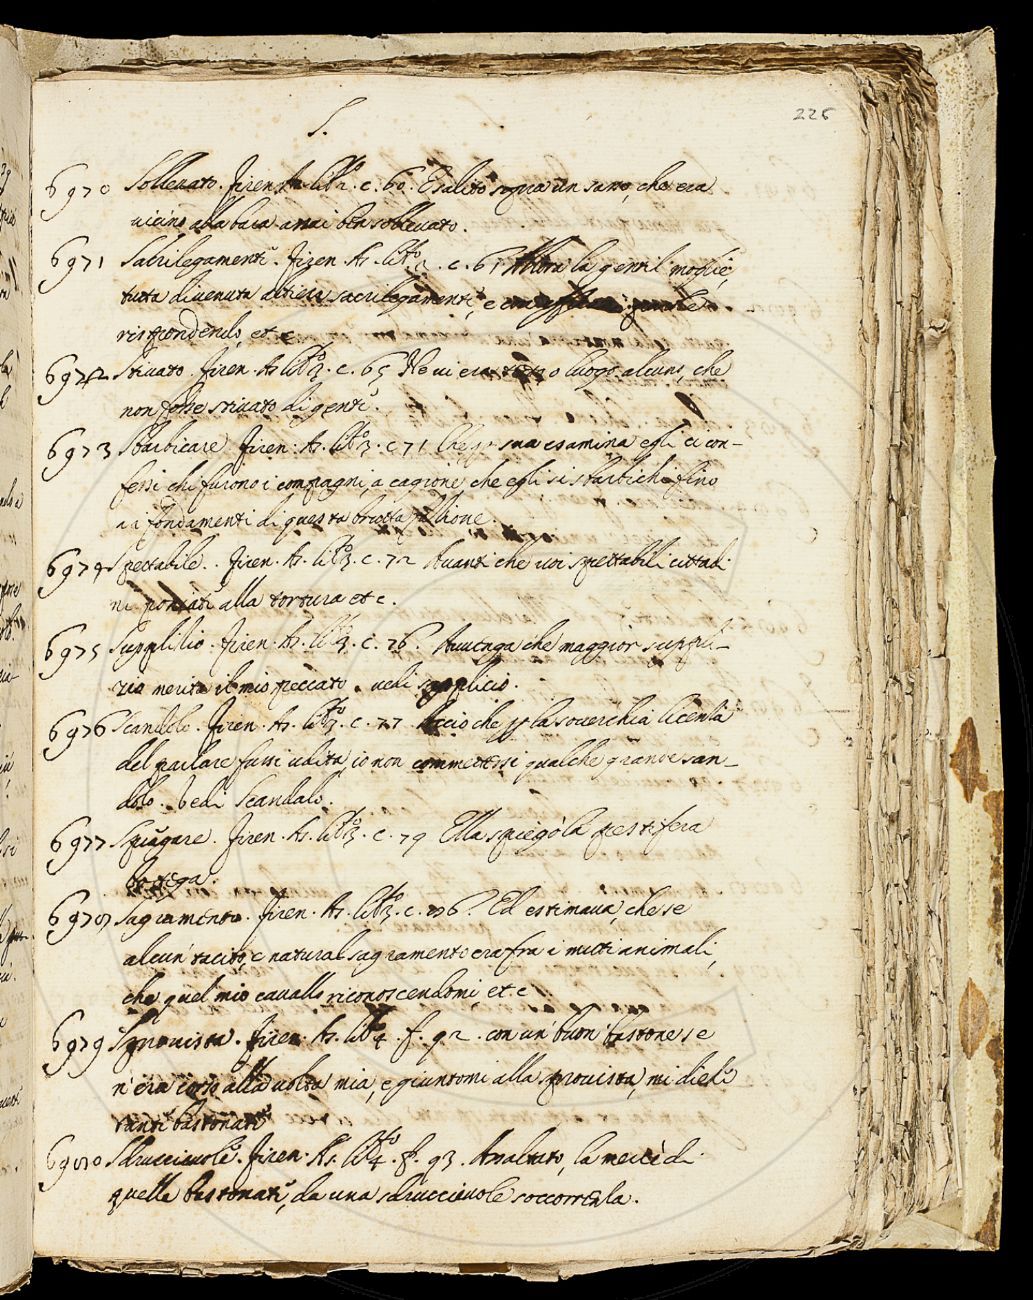 S.
225
6970 Solleuato. Firen. As. lib.2. c. 60. E salito sopra un sasso, che era
uicino alla bara assai ben solleuato.
6971 Sacrilegamente. Firen. As. libº2. c. 61 Allora la gentil moglie,
tutta diuenuta altiera sacrilegamente, e
rispondendo, et c
6972 Stiuato. Firen. As. libº3. c. 65 Ne ui era luogo alcuno, che
non fosse stiuato di gente.
6973 Sbarbicare. Firen. As. libº3. c 71 Che sua esamina egli ci con-
fessi chi furono i compagni, a cagione, che egli si sbarbichi fino
a i fondamenti di questa brutta fattione.
6974 Spettabile. Firen. As. libº3. c. 72 Auanti che uoi spettabili cittadi
ni poniate alla tortura et c.
6975 Supplitio. Firen. As. libº3. c. 76. Auuenga che maggior suppli-
zio merita il mio peccato. uedi supplicio.
6976 Scandolo. Firen. As. libº3. c. 77. Accio che p la souerchia licenza
del parlare fussi udita, io non commettessi qualche grande scan-
dolo. Vedi Scandalo.
6977 Spiegare. Firen. As. libº3. c. 79 Ella spiegò la pestifera
bottega.
6978 Sagramento. Firen. As. libº3. c. 86. Ed estimaua, che se
alcun tacito, e natural sagramento era fra i muti animali,
che quel mio cauallo riconoscendomi et c
6979 Sprouista. Firen. As. libº4. f. 92. con un buon bastone se
n'era corso alla uolta mia, e giuntomi alla sprouista, mi diede
tante bastonate
6980 Sdruccieuole. Firen. As. libº4. f. 93. Assaltato, la mercè di
quelle bastonate, da una sdruccieuole soccorrenza.